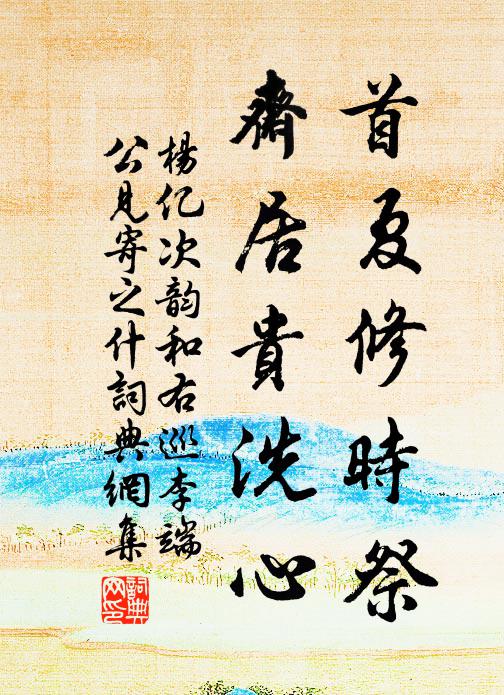 首夏修時祭
齋居貴洗心
楊億次韵和右巡李端
公見寄之什詞典網集